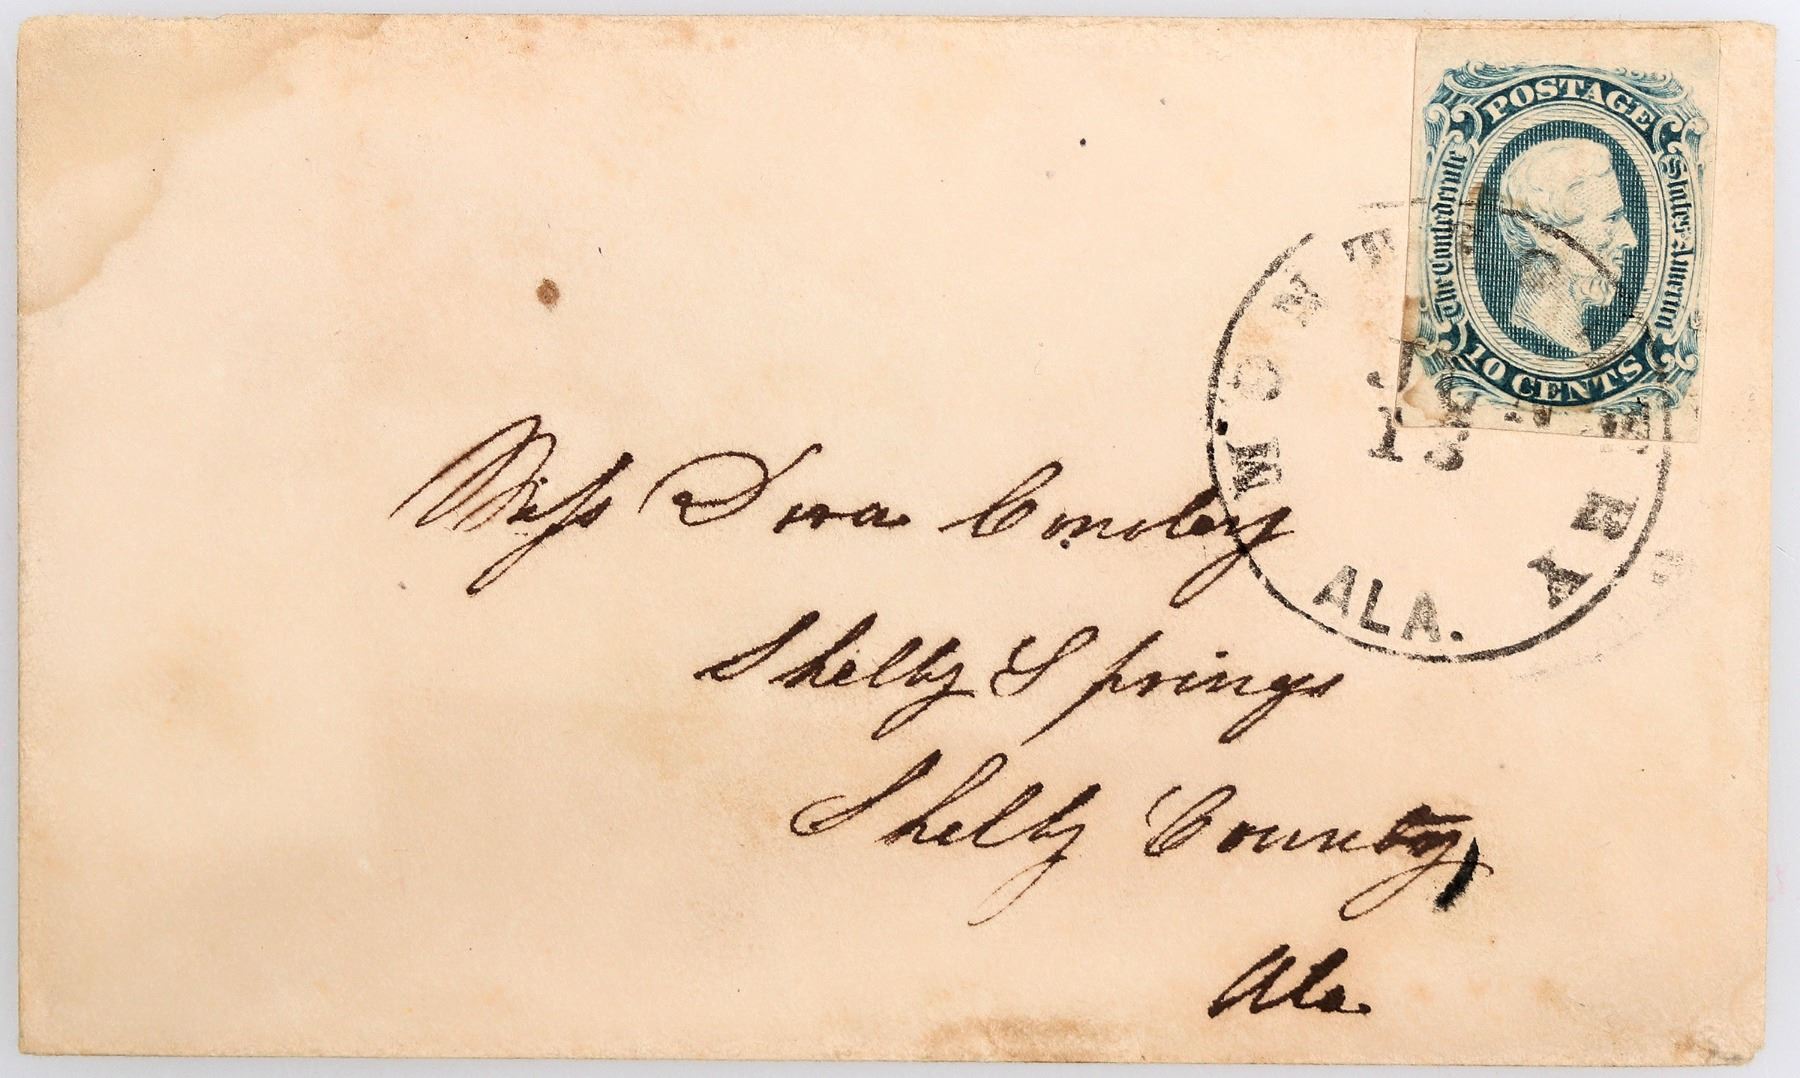 POSTAGE
The Confederate States America
10 CENTS
MONTGOMERY
13
ALA.
Miss Dora
Shelby Springs
Shelby County,
Ala.